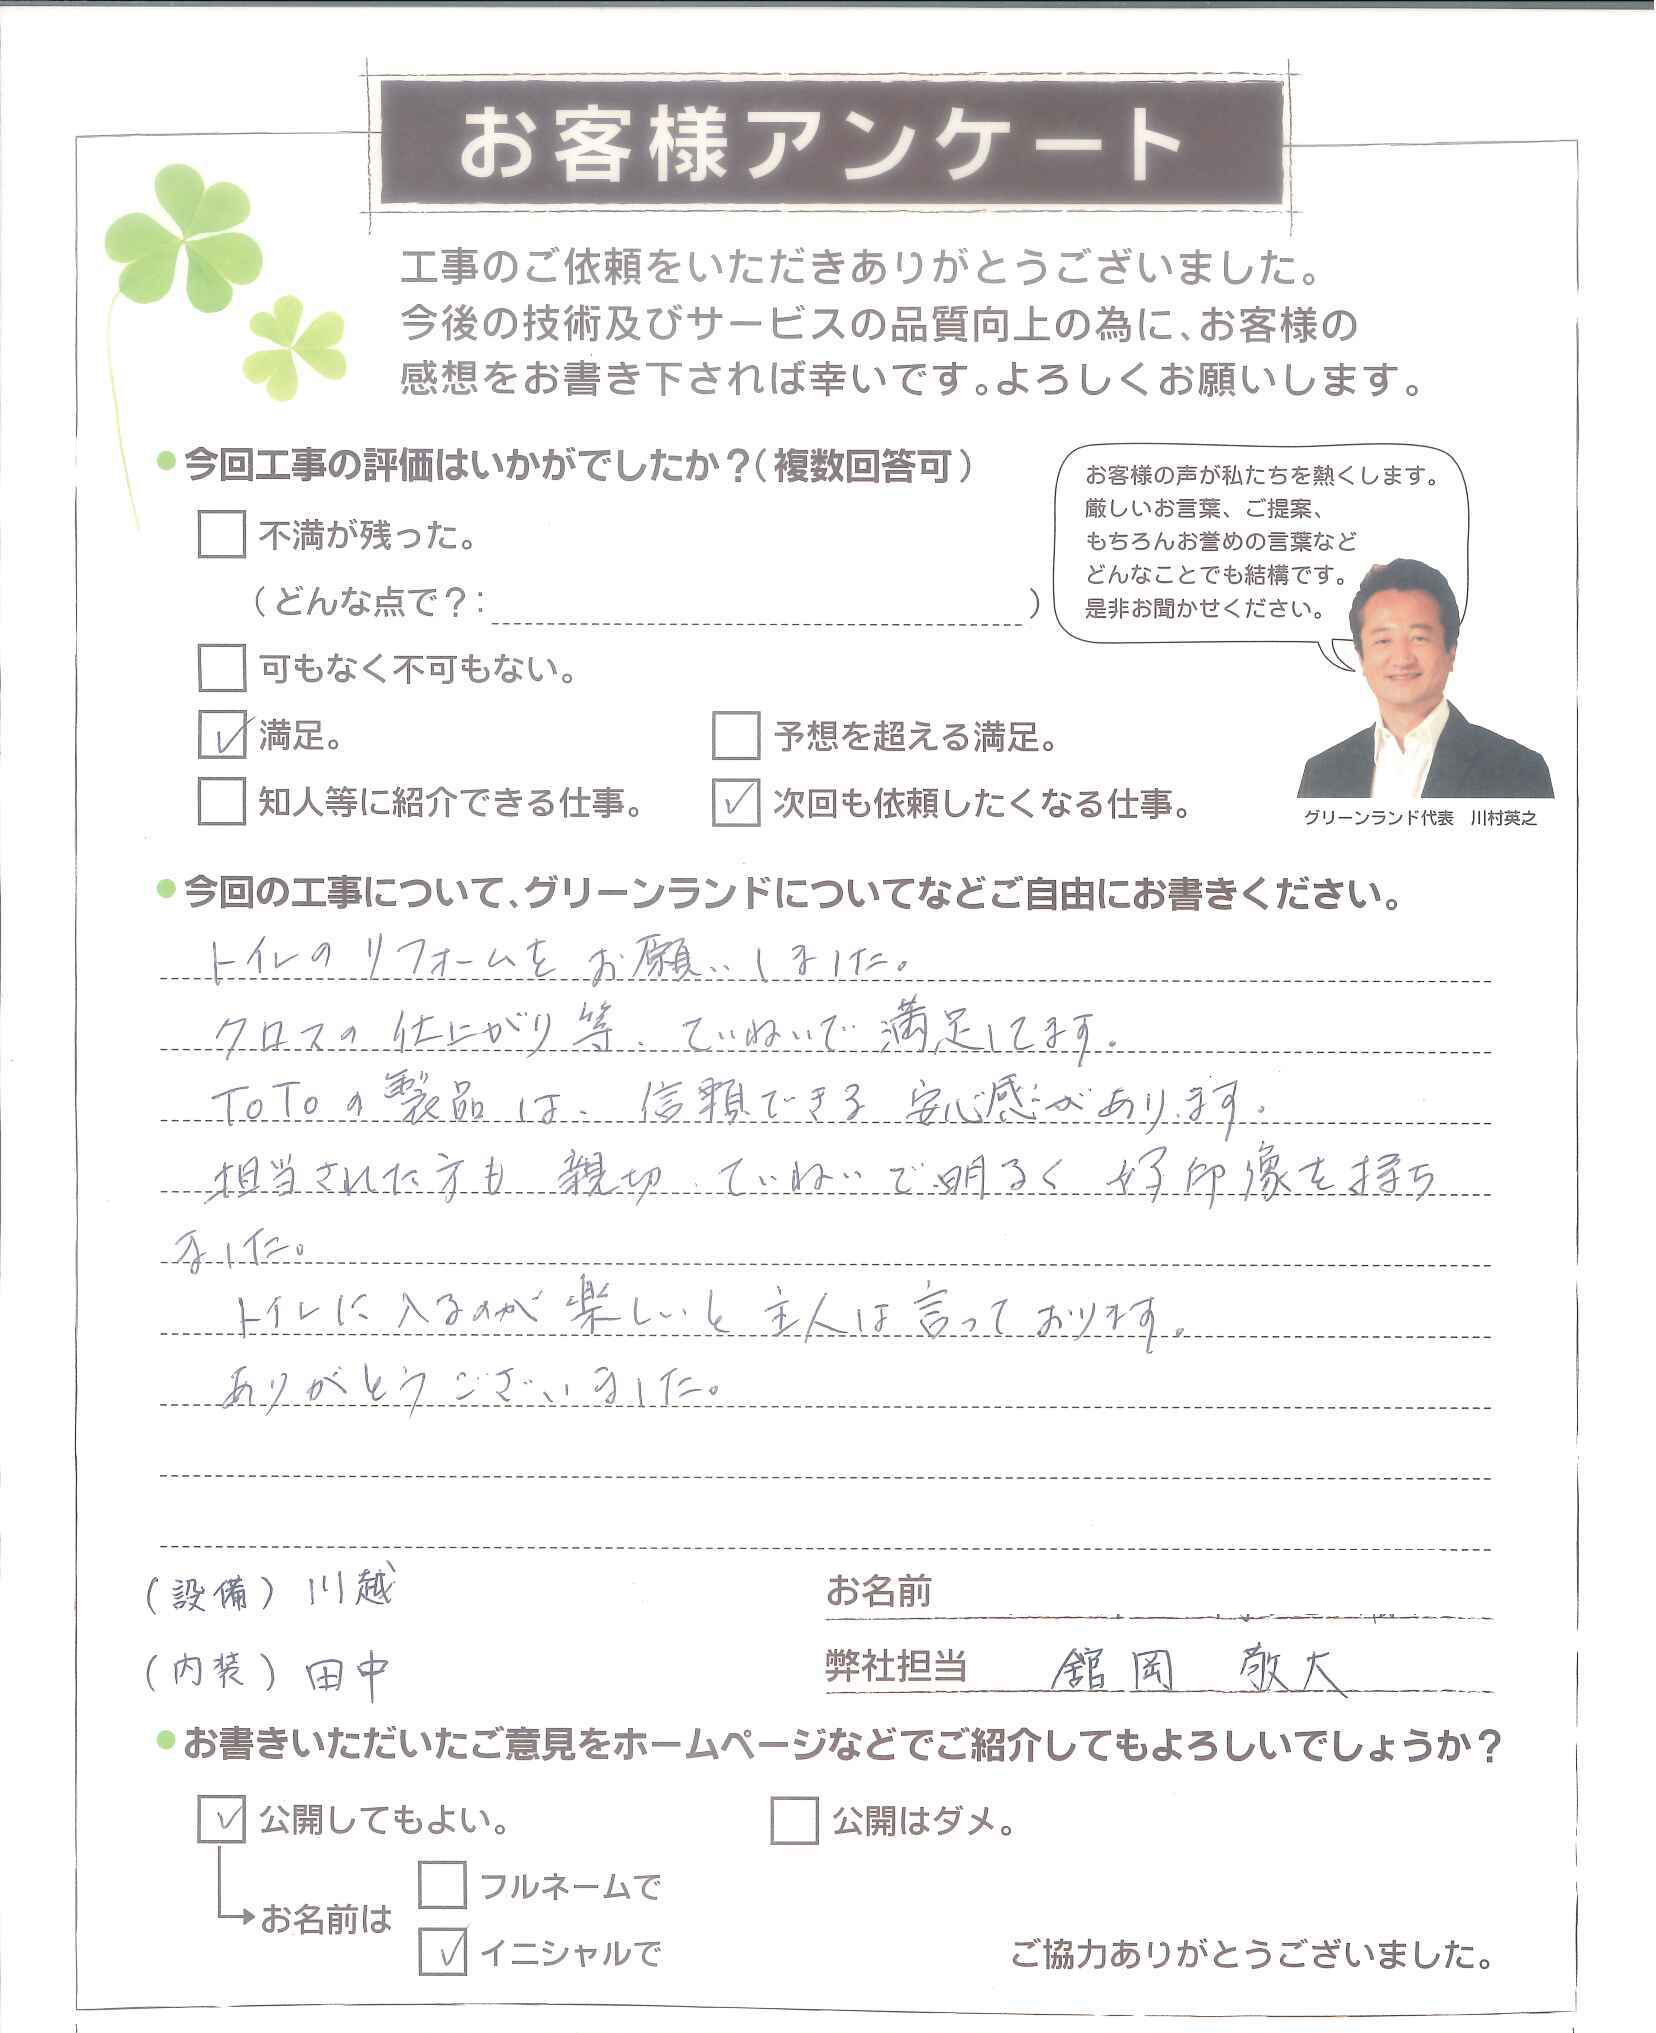 お客様アンケート
工事のご依頼をいただきありがとうございました。
今後の技術及びサービスの品質向上の為に、お客様の
感想をお書き下されば幸いです。よろしくお願いします。
今回工事の評価はいかがでしたか？（複数回答可）
不満が残った。
（どんな点で？： ）
可もなく不可もない。
満足。 予想を超える満足。
知人等に紹介できる仕事。 次回も依頼したくなる仕事。
お客様の声が私たちを熱くします。
厳しいお言葉、ご提案、
もちろんお誉めの言葉など
どんなことでも結構です。
是非お聞かせください。
グリーンランド代表　川村英之
今回の工事について、グリーンランドについてなどご自由にお書きください。
トイレのリフォームをお願いしました。
クロスの仕上がり等、ていねいで満足してます。
TOTOの製品は、信頼できる安心感があります。
担当された方も親切、ていねいで明るく好印像を持ち
ました。
トイレに入るのが楽しいと主人は言っております。
ありがとうございました。
（設備）川越
（内装）田中
お名前
弊社担当 舘岡 敬大
お書きいただいたご意見をホームページなどでご紹介してもよろしいでしょうか？
公開してもよい。 公開はダメ。
お名前は
フルネームで
イニシャルで
ご協力ありがとうございました。